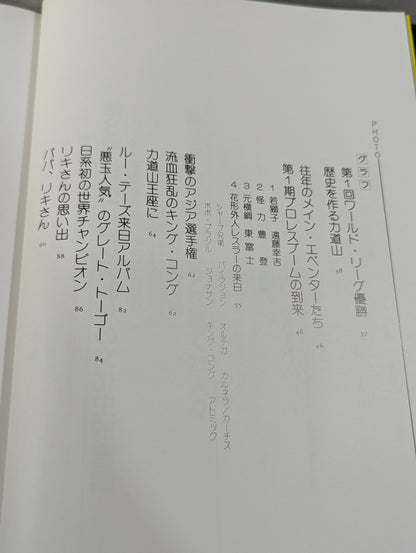 PHOTO
グラフ
第1回ワールド・リーグ優勝 37
歴史を作る力道山 38
往年のメイン・エベンターたち 46
第1期プロレスブームの到来 48
1 若獅子 遠藤幸吉
2 怪力 豊登
3 元横綱 東富士
4 花形外人レスラーの来日 55
シャープ兄弟 バイラジョン オルテガ カルネラ/カーチス
ボボ・ブラジル ジョナサン キング・コング アトミック
衝撃のアジア選手権 62
流血狂乱のキング・コング 62
力道山王座に 64
ルー・テーズ来日アルバム 82
“悪玉人気”のグレート・トーゴー 84
日系初の世界チャンピオン 86
リキさんの思い出 88
パパ、リキさん 90